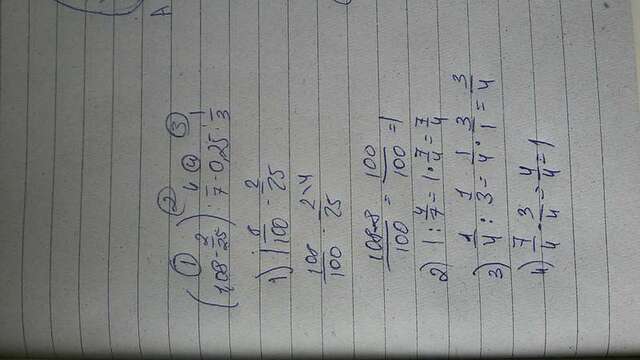 ① ② ④ ③
(1,08 - 2/25) : 4/7 - 0,25 : 1/3
1) 1 8/100 - 2/25
108/100 - 2\4/25
108-8/100 = 100/100 = 1
2) 1 : 4/7 = 1 · 7/4 = 7/4
3) 1/4 : 1/3 = 1/4 · 3/1 = 3/4
4) 7/4 - 3/4 = 4/4 = 1
A